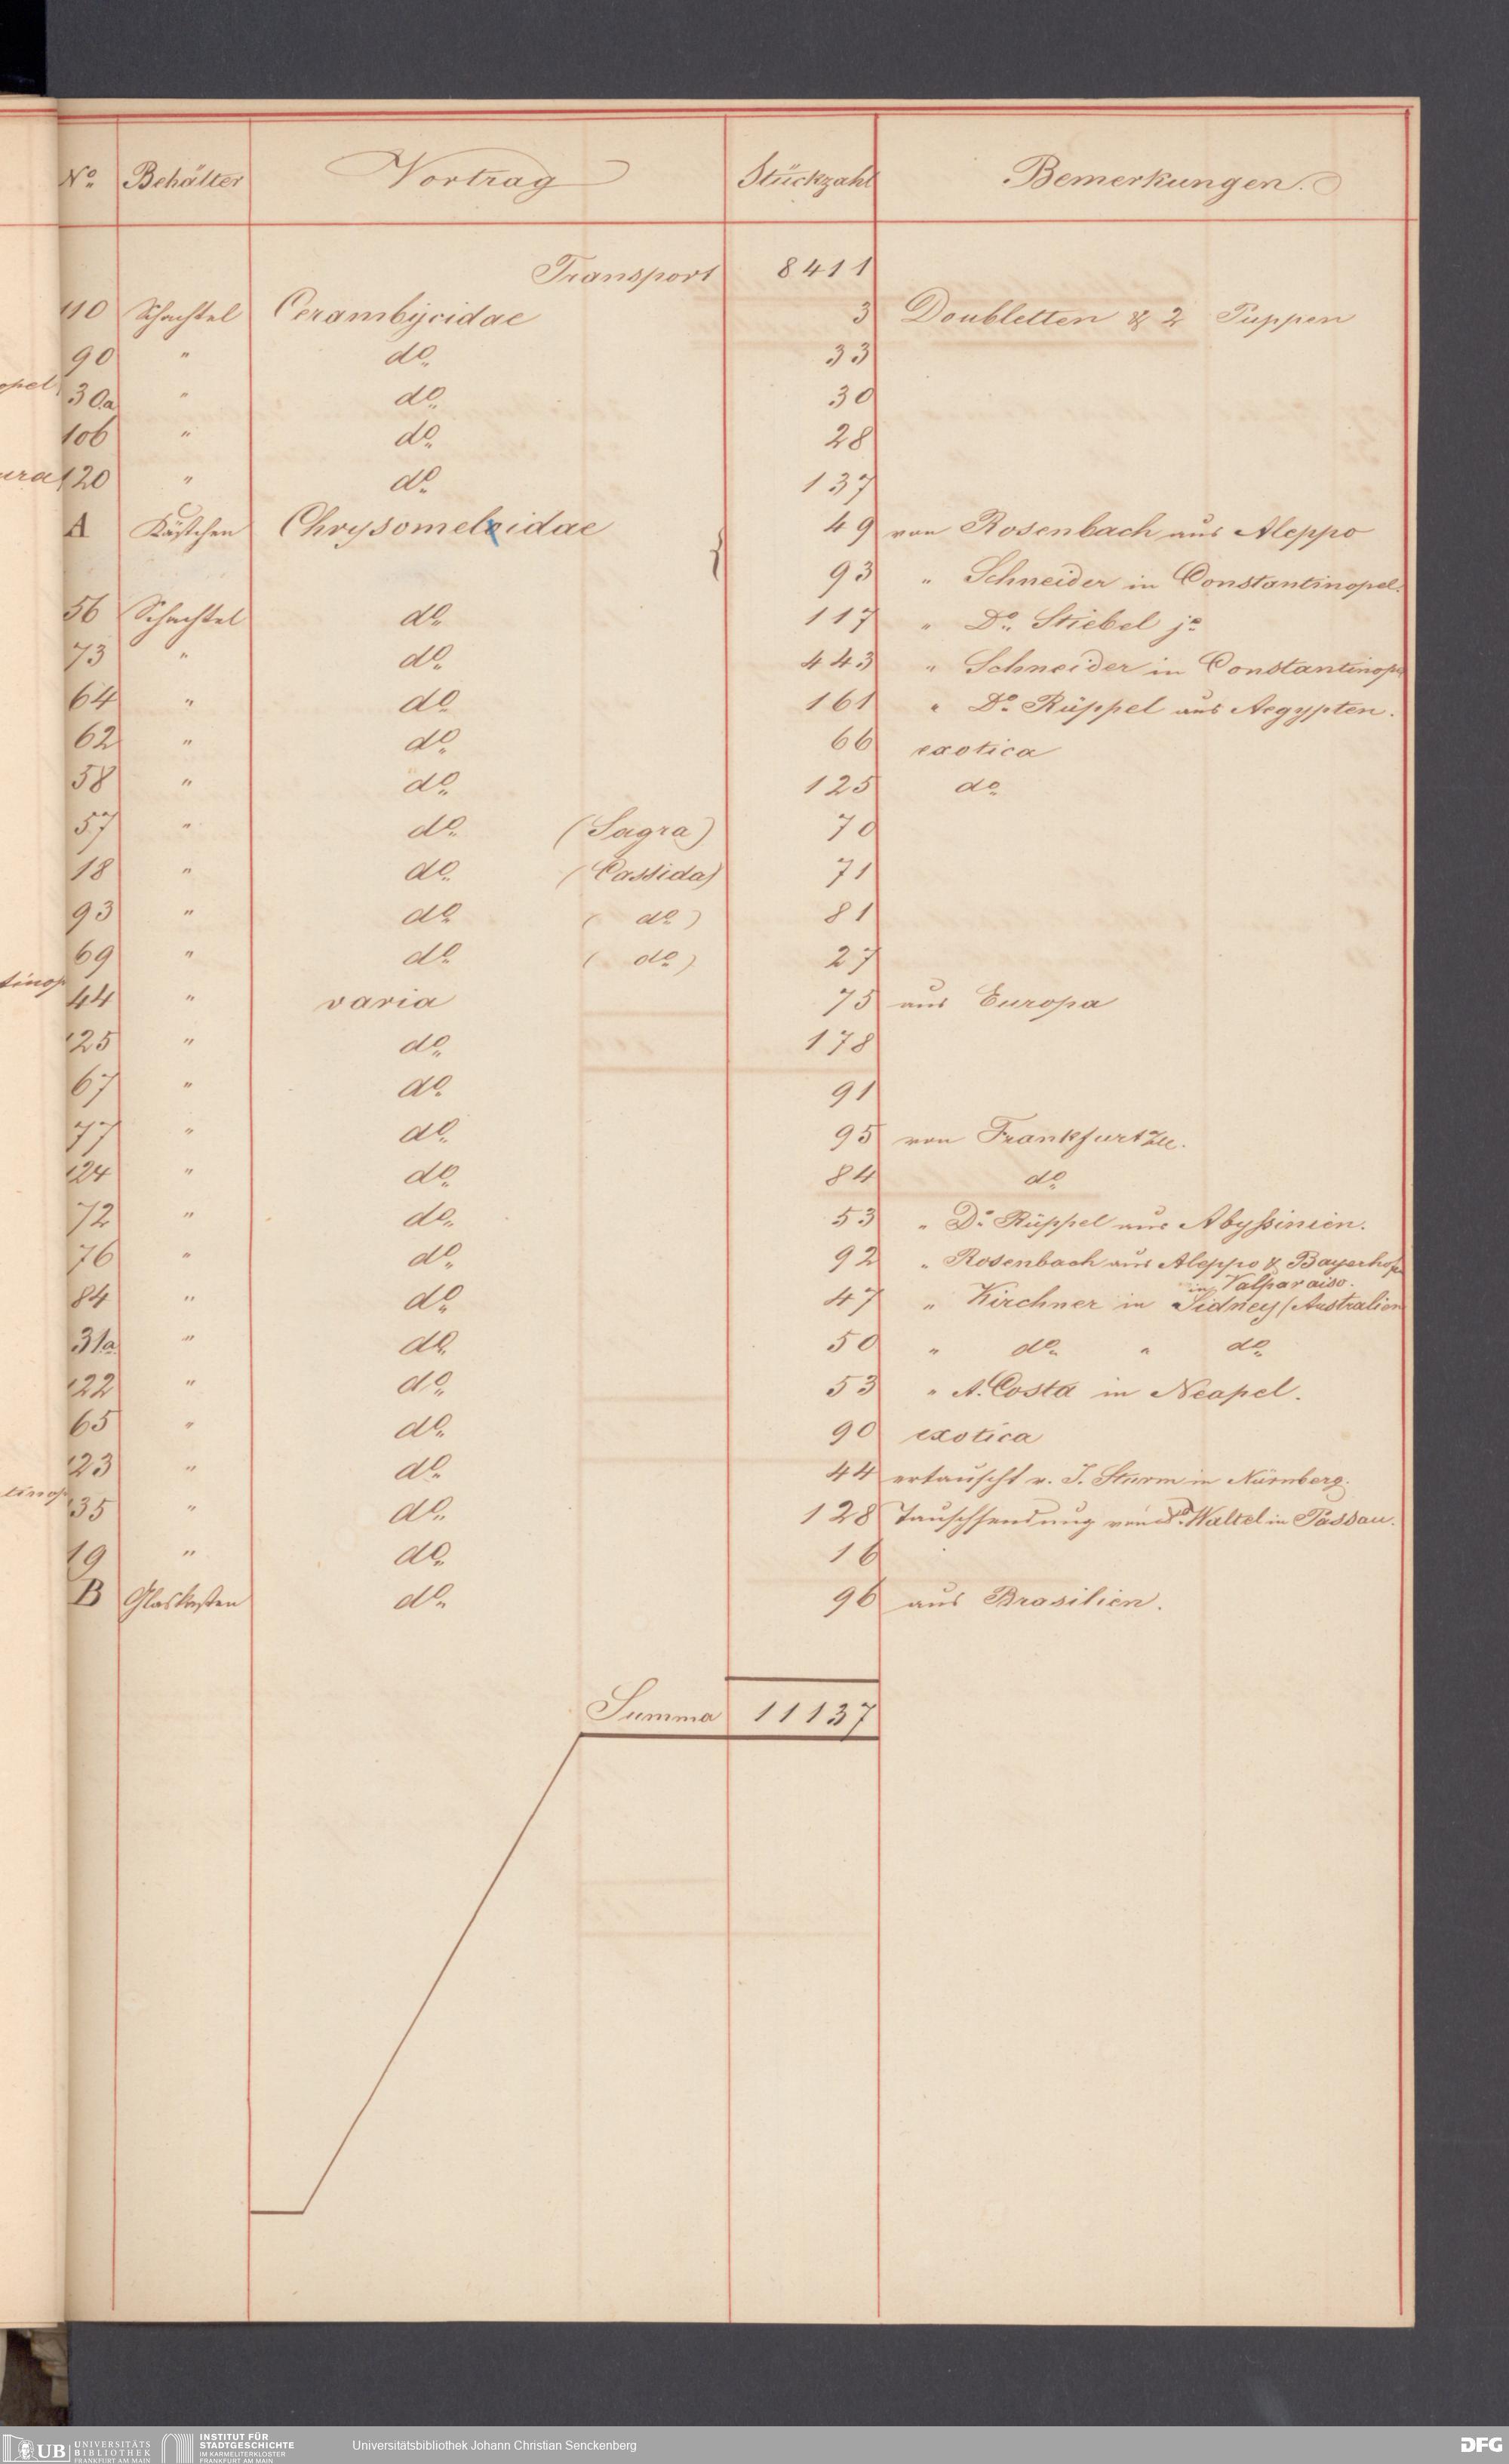 No. Behälter Vortrag Stückzahl Bemerkungen.
Transport 8411
110 Schachtel Cerambÿcidae 3 Doubletten & 2 Puppen
90 " do. 33
30a " do. 30
106 " do. 28
120 " do. 137
A Kästchen Chrysomelidae { 49 von Rosenbach aus Aleppo
93 " Schneider in Constantinopel.
56 Schachtel do. 117 " Dr. Stiebel jr
73 " do. 443 " Schneider in Constantinope
64 " do. 161 " Dr. Rüppel aus Aegypten.
62 " do. 66 exotica
58 " do. 125 do.
57 " do. (Sagra) 70
18 " do. (Cassida) 71
93 " do. ( do. ) 81
69 " do. ( do. ) 27
44 " varia 75 aus Europa
125 " do. 178
67 " do. 91
77 " do. 95 von Frankfurt
124 " do. 84 do.
72 " do. 53 " Dr. Rüppel aus Abyßinien.
76 " do. 92 " Rosenbach aus Aleppo &
in Valparaiso.
84 " do. 47 " Kirchner in Sidney (Australien
31a " do. 50 " do. " do.
122 " do. 53 " A. Costa in Neapel.
65 " do. 90 exotica
123 " do. 44 ertauscht v. J. Sturm in Nürnberg.
135 " do. 128 Tauschsendung von Dr. Waltel in Passau.
19 " do. 16
B Glaskasten do. 96 aus Brasilien.
Summa 11137
UB UNIVERSITÄTS
BIBLIOTHEK
FRANKFURT AM MAIN
INSTITUT FÜR
STADTGESCHICHTE
IM KARMELITERKLOSTER
FRANKFURT AM MAIN
Universitätsbibliothek Johann Christian Senckenberg
DFG